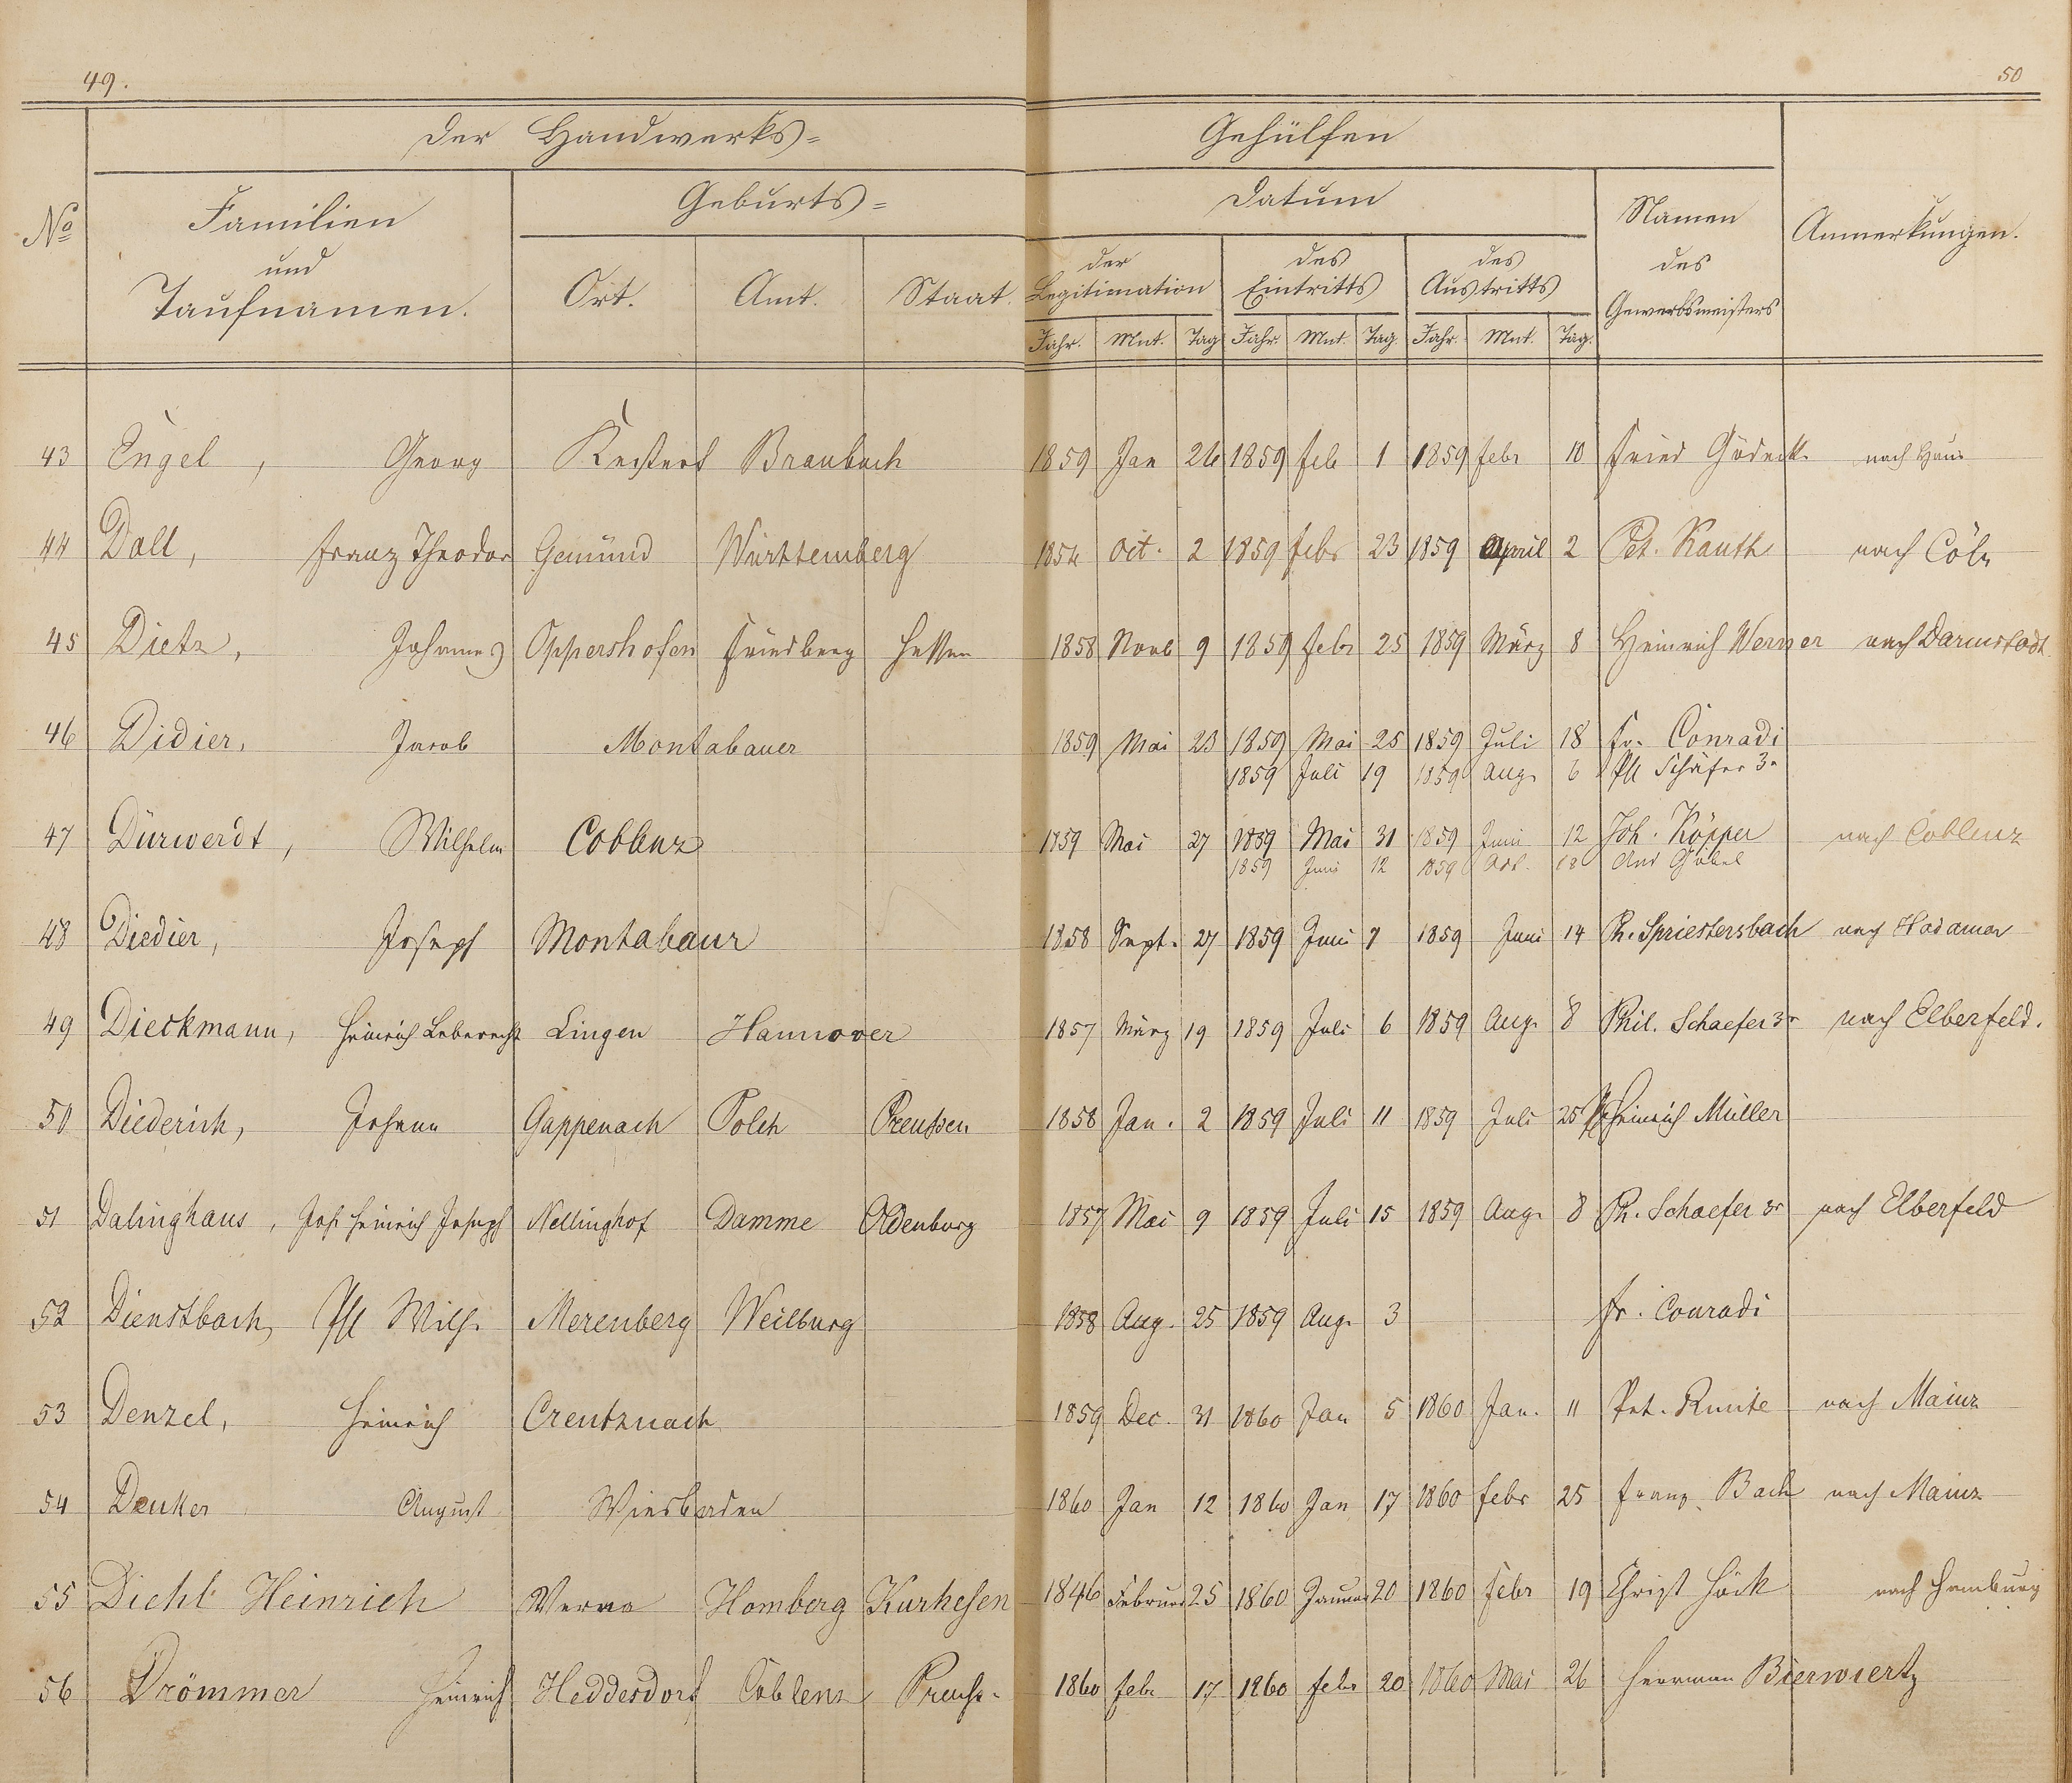 49.
50
Der Handwerks= Gehülfen
No
Familien und Taufnamen.
Geburts=
Ort. Amt. Staat.
Datum
der Legitimation
des Eintritts
des Austritts
Jahr. Mnt. Tag Jahr. Mnt. Tag. Jahr. Mnt. Tag.
Namen des Gewerbsmeisters
Anmerkungen.
43 Engel, Georg Kestert Braubach 1859 Jan 26 1859 feb 1 1859 febr 10 Fried nach Haus
44 Doll, Franz Theodor Gemünd Württemberg 1854 Oct. 2 1859 febr 23 1859 April 2 Pet. Kauth nach Cöln
45 Dietz, Johannes Oppershofen Friedberg Hessen 1858 Novb 9 1859 febr 25 1859 März 8 Heinrich Werner nach Darmstadt
46 Didier, Jacob Montabauer 1859 Mai 23 1859 Mai 25 1859 Juli 18 Fr. Conradi
1859 Juli 19 1859 Aug. 6 Ph Schäfer 3r
47 Dürwerdt, Wilhelm Coblenz 1859 Mai 27 1859 Mai 31 1859 Juni 12 Joh. Köpper nach Coblenz
1859 Juni 12 1859 Oct. 18 And Göbel
48 Diedier, Joseph Montabaur 1858 Sept. 27 1859 Juni 7 1859 Juni 14 Ph. Spriestersbach nach Hadamar
49 Dieckmann, Heinrich Leberecht Lingen Hannover 1857 März 19 1859 Juli 6 1859 Aug. 8 Phil. Schaefer 3r nach Elberfeld.
50 Diederich, Johann Gappenach Polch Preussen 1858 Jan. 2 1859 Juli 11 1859 Juli 25 Heinrich Müller
51 Dalinghaus, Joh Heinrich Joseph Nellinghof Damme Oldenburg 1857 Mai 9 1859 Juli 15 1859 Aug. 8 Ph. Schaefer 3r nach Elberfeld
52 Dienstbach, Ph Wilh. Merenberg Weilburg 1858 Aug. 25 1859 Aug. 3 Fr. Conradi
53 Denzel, Heinrich Creutznach 1859 Dec. 31 1860 Jan 5 1860 Jan. 11 Pet. nach Mainz
54 Denker August Wiesbaden 1860 Jan 12 1860 Jan 17 1860 febr 25 Franz Bach nach Mainz
55 Diehl Heinrich Verna Homberg Kurhesen 1846 Februar 25 1860 Januar 20 1860 febr 19 Christ Höck nach Homburg
56 Drömmer Heinrich Heddesdorf Coblenz Preuß. 1860 febr 17 1860 febr 20 1860 Mai 26 Herrman Bierwiertz